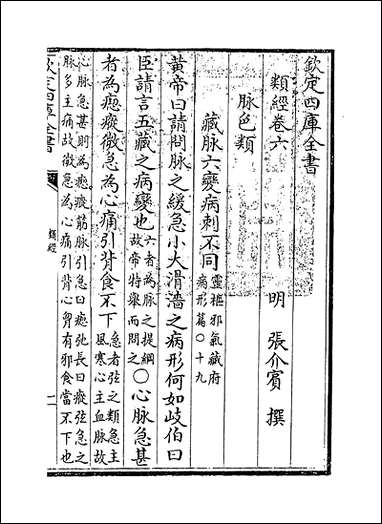 欽定四庫全書
類經卷六
明 張介賓 撰
脉色類
藏脉六變病刺不同靈樞邪氣藏府
病形篇〇十九
黃帝曰請問脉之緩急小大滑濇之病形何如岐伯曰
臣請言五藏之病變也六者為脉之提綱
故帝特舉而問之〇心脉急甚
者為瘛瘲微急為心痛引背食不下急者弦之類急主
風寒心主血脉故
心脉急甚則為瘛瘲筋脉引急曰瘛弛長曰瘲弦急之
脉多主痛故微急為心痛引背心胷有邪食當不下也
欽定四庫全書
類經
一